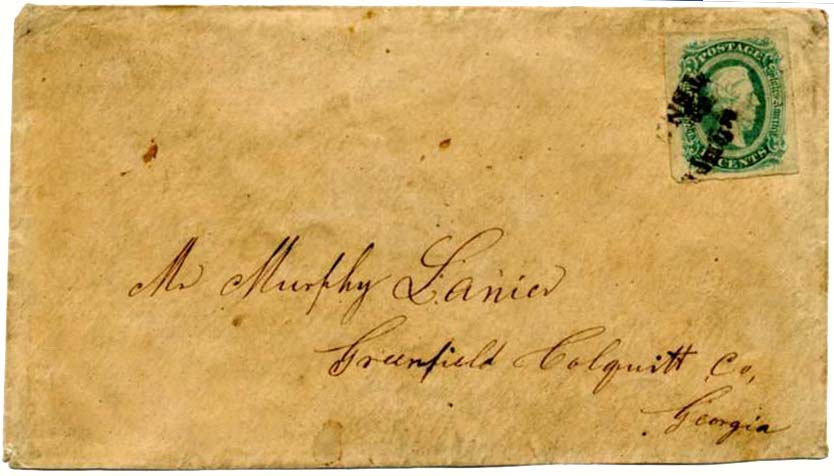 POSTAGE
CENTS
Mr Murphy Lanier
Greenfield Colquitt Co,
Georgia